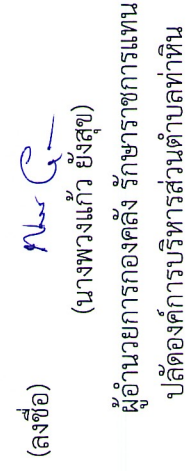 (ลงชื่อ)
(นางพวงแก้ว ยังสุข)
ผู้อำนวยการกองคลัง รักษาราชการแทน
ปลัดองค์การบริหารส่วนตำบลท่าหิน